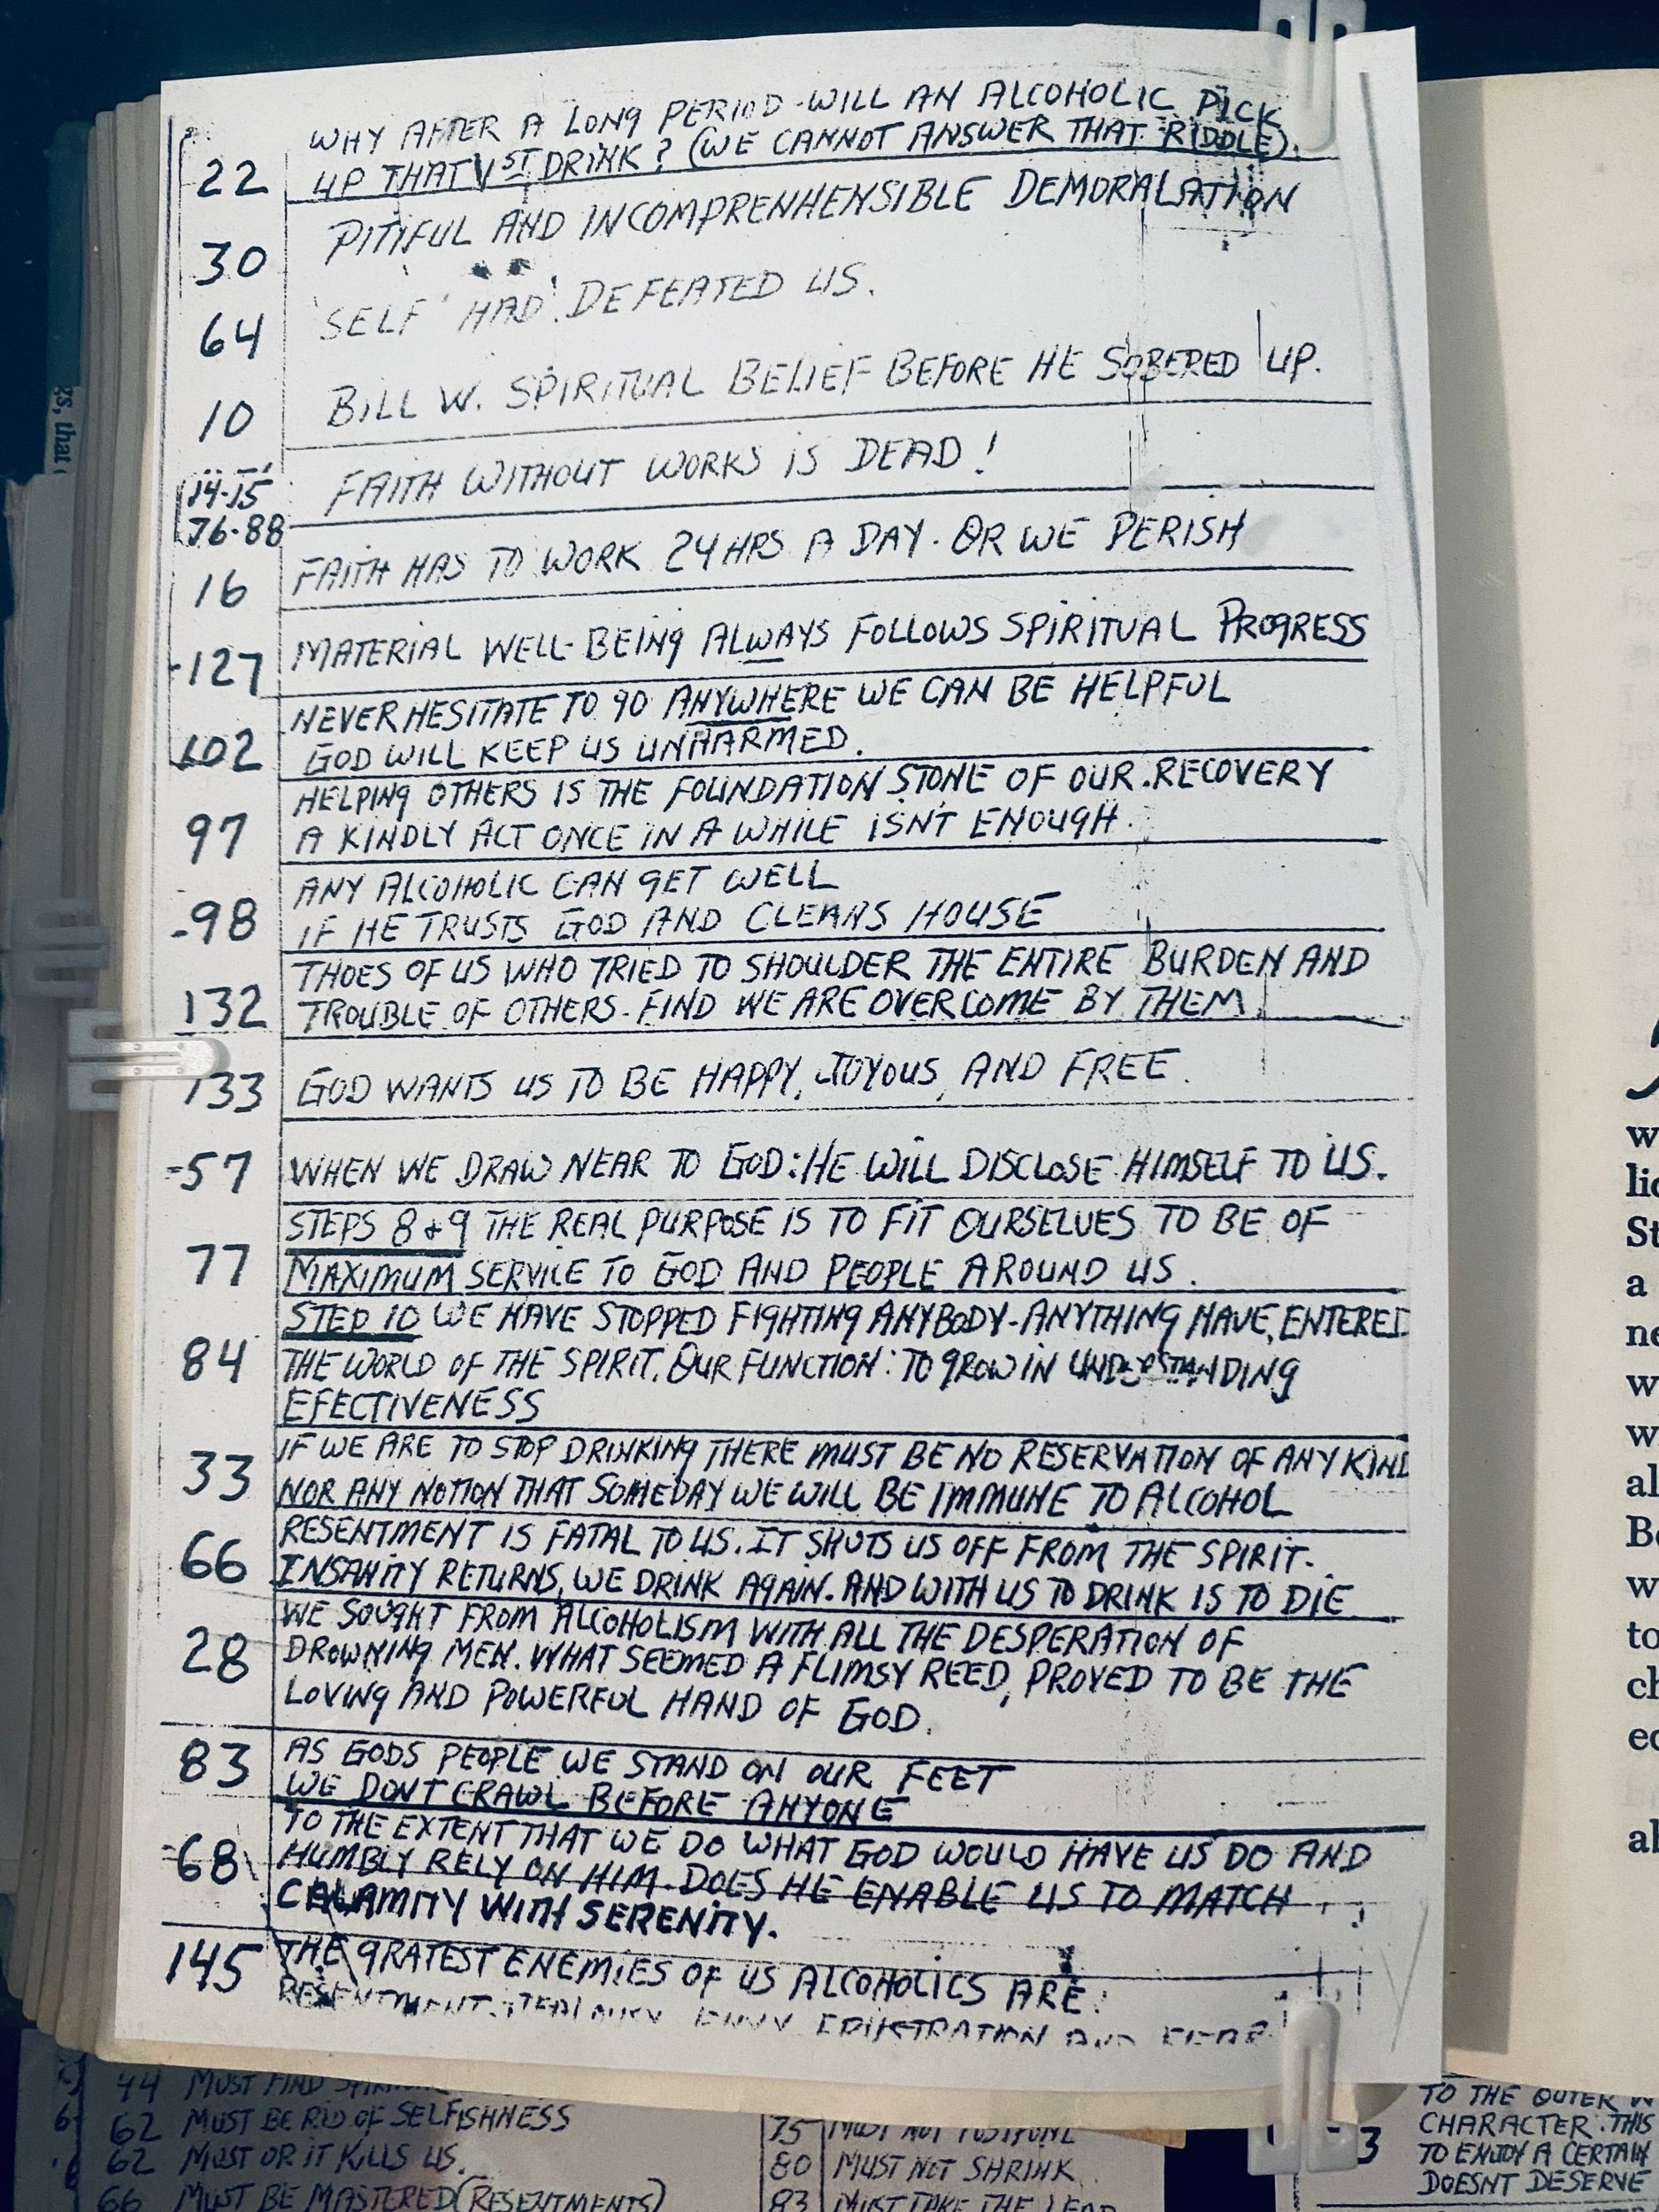 WHY AFTER A LONG PERIOD-WILL AN ALCOHOLIC PICK
22 UP THAT 1ST DRINK? (WE CANNOT ANSWER THAT RIDDLE).
30 PITIFUL AND INCOMPRENHENSIBLE DEMORALATION
64 'SELF' HAD DEFEATED US.
10 BILL W. SPIRITUAL BELIEF BEFORE HE SOBERED UP.
14-15
76-88 FAITH WITHOUT WORKS IS DEAD!
16 FAITH HAS TO WORK 24 HRS A DAY. OR WE PERISH
-127 MATERIAL WELL-BEING ALWAYS FOLLOWS SPIRITUAL PROGRESS
NEVER HESITATE TO GO ANYWHERE WE CAN BE HELPFUL
102 GOD WILL KEEP US UNHARMED.
HELPING OTHERS IS THE FOUNDATION STONE OF OUR RECOVERY
97 A KINDLY ACT ONCE IN A WHILE ISN'T ENOUGH.
ANY ALCOHOLIC CAN GET WELL
-98 IF HE TRUSTS GOD AND CLEANS HOUSE
THOES OF US WHO TRIED TO SHOULDER THE ENTIRE BURDEN AND
132 TROUBLE OF OTHERS-FIND WE ARE OVERCOME BY THEM.
133 GOD WANTS US TO BE HAPPY, JOYOUS, AND FREE.
-57 WHEN WE DRAW NEAR TO GOD: HE WILL DISCLOSE HIMSELF TO US.
STEPS 8+9 THE REAL PURPOSE IS TO FIT OURSELVES TO BE OF
77 MAXIMUM SERVICE TO GOD AND PEOPLE AROUND US.
STEP 10 WE HAVE STOPPED FIGHTING ANYBODY-ANYTHING HAVE, ENTERED
84 THE WORLD OF THE SPIRIT. OUR FUNCTION: TO GROW IN UNDERSTANDING
EFECTIVENESS
IF WE ARE TO STOP DRINKING THERE MUST BE NO RESERVATION OF ANY KIND
33 NOR ANY NOTION THAT SOMEDAY WE WILL BE IMMUNE TO ALCOHOL
RESENTMENT IS FATAL TO US. IT SHUTS US OFF FROM THE SPIRIT.
66 INSANITY RETURNS, WE DRINK AGAIN. AND WITH US TO DRINK IS TO DIE
WE SOUGHT FROM ALCOHOLISM WITH ALL THE DESPERATION OF
28 DROWNING MEN. WHAT SEEMED A FLIMSY REED, PROVED TO BE THE
LOVING AND POWERFUL HAND OF GOD.
83 AS GODS PEOPLE WE STAND ON OUR FEET
WE DON'T CRAWL BEFORE ANYONE
TO THE EXTENT THAT WE DO WHAT GOD WOULD HAVE US DO AND
-68 HUMBLY RELY ON HIM. DOES HE ENABLE US TO MATCH
CALAMITY WITH SERENITY.
145 THE GRATEST ENEMIES OF US ALCOHOLICS ARE:
RESENTMENT, JEALOUSY ENVY FRUSTRATION AND FEAR
44 MUST FIND
62 MUST BE RID OF SELFISHNESS
62 MUST OR IT KILLS US.
66 MUST BE MASTERED (RESENTMENTS)
75 MUST NOT POSTPONE
80 MUST NOT SHRINK
83 MUST TAKE THE LEAD
TO THE OUTER
CHARACTER. THIS
3 TO ENJOY A CERTAIN
DOESNT DESERVE